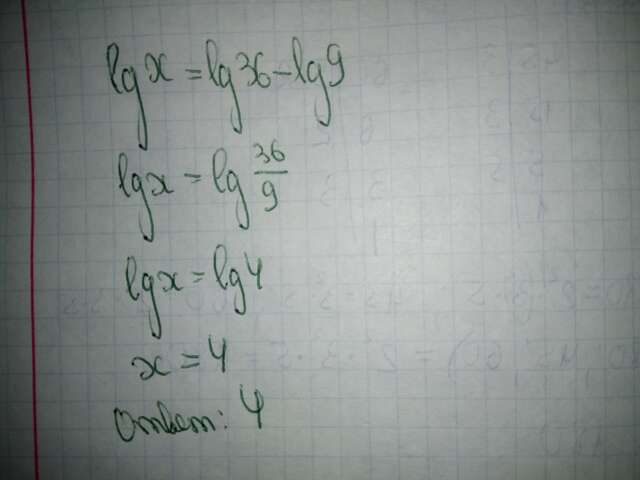 lg x = lg 36 - lg 9
lg x = lg 36/9
lg x = lg 4
x = 4
Ответ: 4